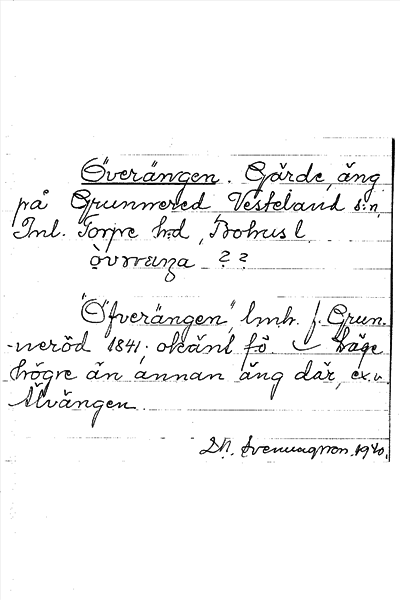 Överängen. Gärde, äng
på Grunnered, Vesteland s:n,
Inl. Torpe hd, Bohus l.
? ?
"Öfverängen", lmh. f. Grun-
-neröd 1841; okänt f.ö. Läge
högre än annan äng där, ex.v.
Älvängen.
D.N. Svenungsson. 1940.